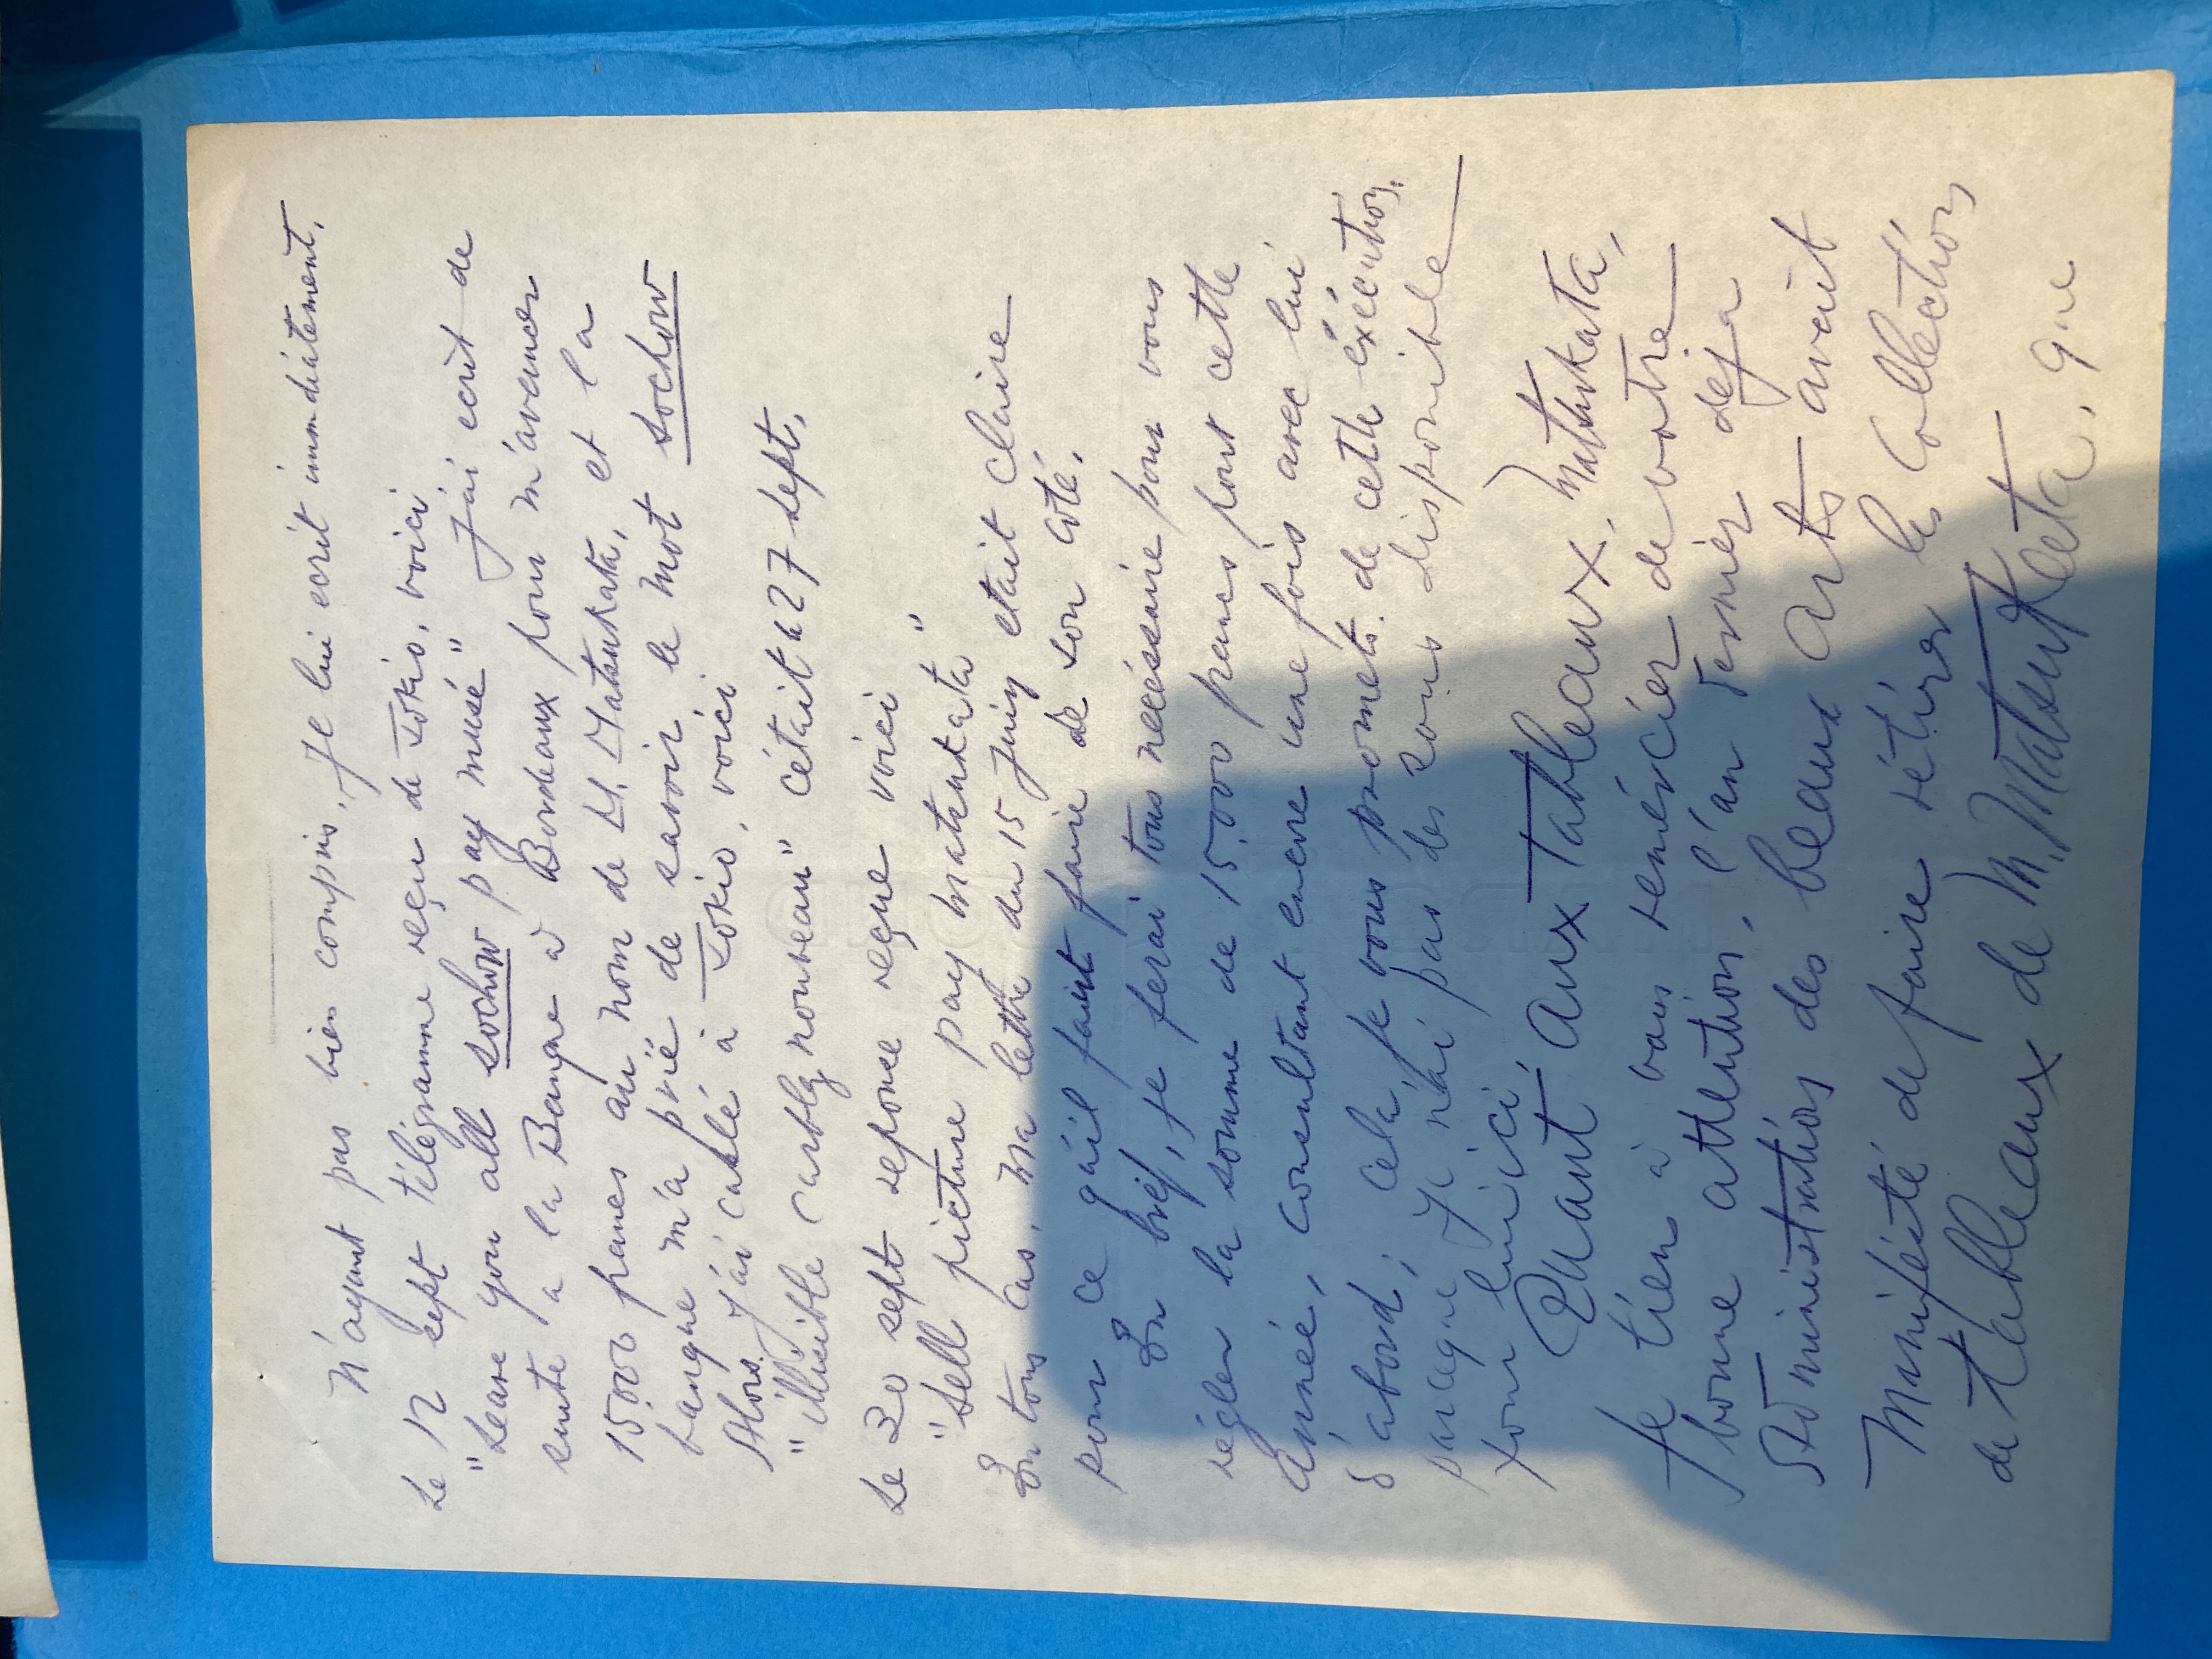 N'ayant pas bien compris, je lui ecrit immédiatement,
Le 12 sept télégramme reçu de Tokio, voici
"Leave you all sochow pay musé" J'ai ecrit de
suite a la Banque à Bordeaux pour m'avancer
15.000 francs au nom de M. Matsukata, et la
banque m'a prié de savoir le mot sochow
Alors J'ai cablé à Tokio, voici
"illisible nouveau" c'était le 27 sept,
Le 30 sept réponse reçue voici
"Sell picture pay matsukata"
En tous cas, ma lettre du 15 Juin etait claire
pour ce qu'il faut faire de son coté,
En bref, je ferai tous necéssaire pour vous
régler la somme de 15.000 francs pour cette
année, consultant encore une fois avec lui
d'abord; cela je vous promets de cette éxécution,
parceque je n'ai pas des sous disponible
pour lui ici,
Quant aux Tableaux, Matsukata,
Je tien à vous remércier de votre
bonne attention, l'an dernier deja
Administration des beaux Arts avait
Manifésté de faire rétirer les Collections
de tableaux de M. Matsukata, que